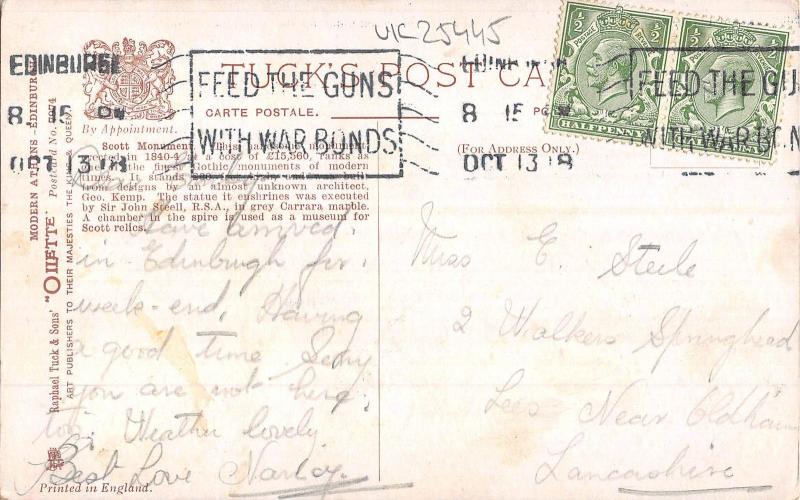 UK25445
EDINBURGH
8. 15 PM
OCT 13 18
FEED THE GUNS
WITH WAR BONDS
EDINBURGH
8 15 PM
OCT 13 18
FEED THE GU
WITH WAR BON
TUCK'S POST CA
CARTE POSTALE.
(FOR ADDRESS ONLY.)
HALFPENNY
By Appointment.
Scott Monument. This handsome monument
erected in 1840-4 at a cost of £15,560, ranks as
one of the finest Gothic monuments of modern
times. It stands 200 feet high
from designs by an almost unknown architect,
Geo. Kemp. The statue it enshrines was executed
by Sir John Steell, R.S.A., in grey Carrara marble.
A chamber in the spire is used as a museum for
Scott relics.
MODERN ATHENS - EDINBURGH
Raphael Tuck & Sons' "OILETTE" Postcard No.
ART PUBLISHERS TO THEIR MAJESTIES THE KING & QUEEN
Have arrived
in Edinburgh for
week-end. Having
a good time. Sorry
you are not here
too. Weather lovely
Best Love Nancy.
Printed in England.
Miss E. Steele
2 Walkers Springhead
Lees Near Oldham
Lancashire